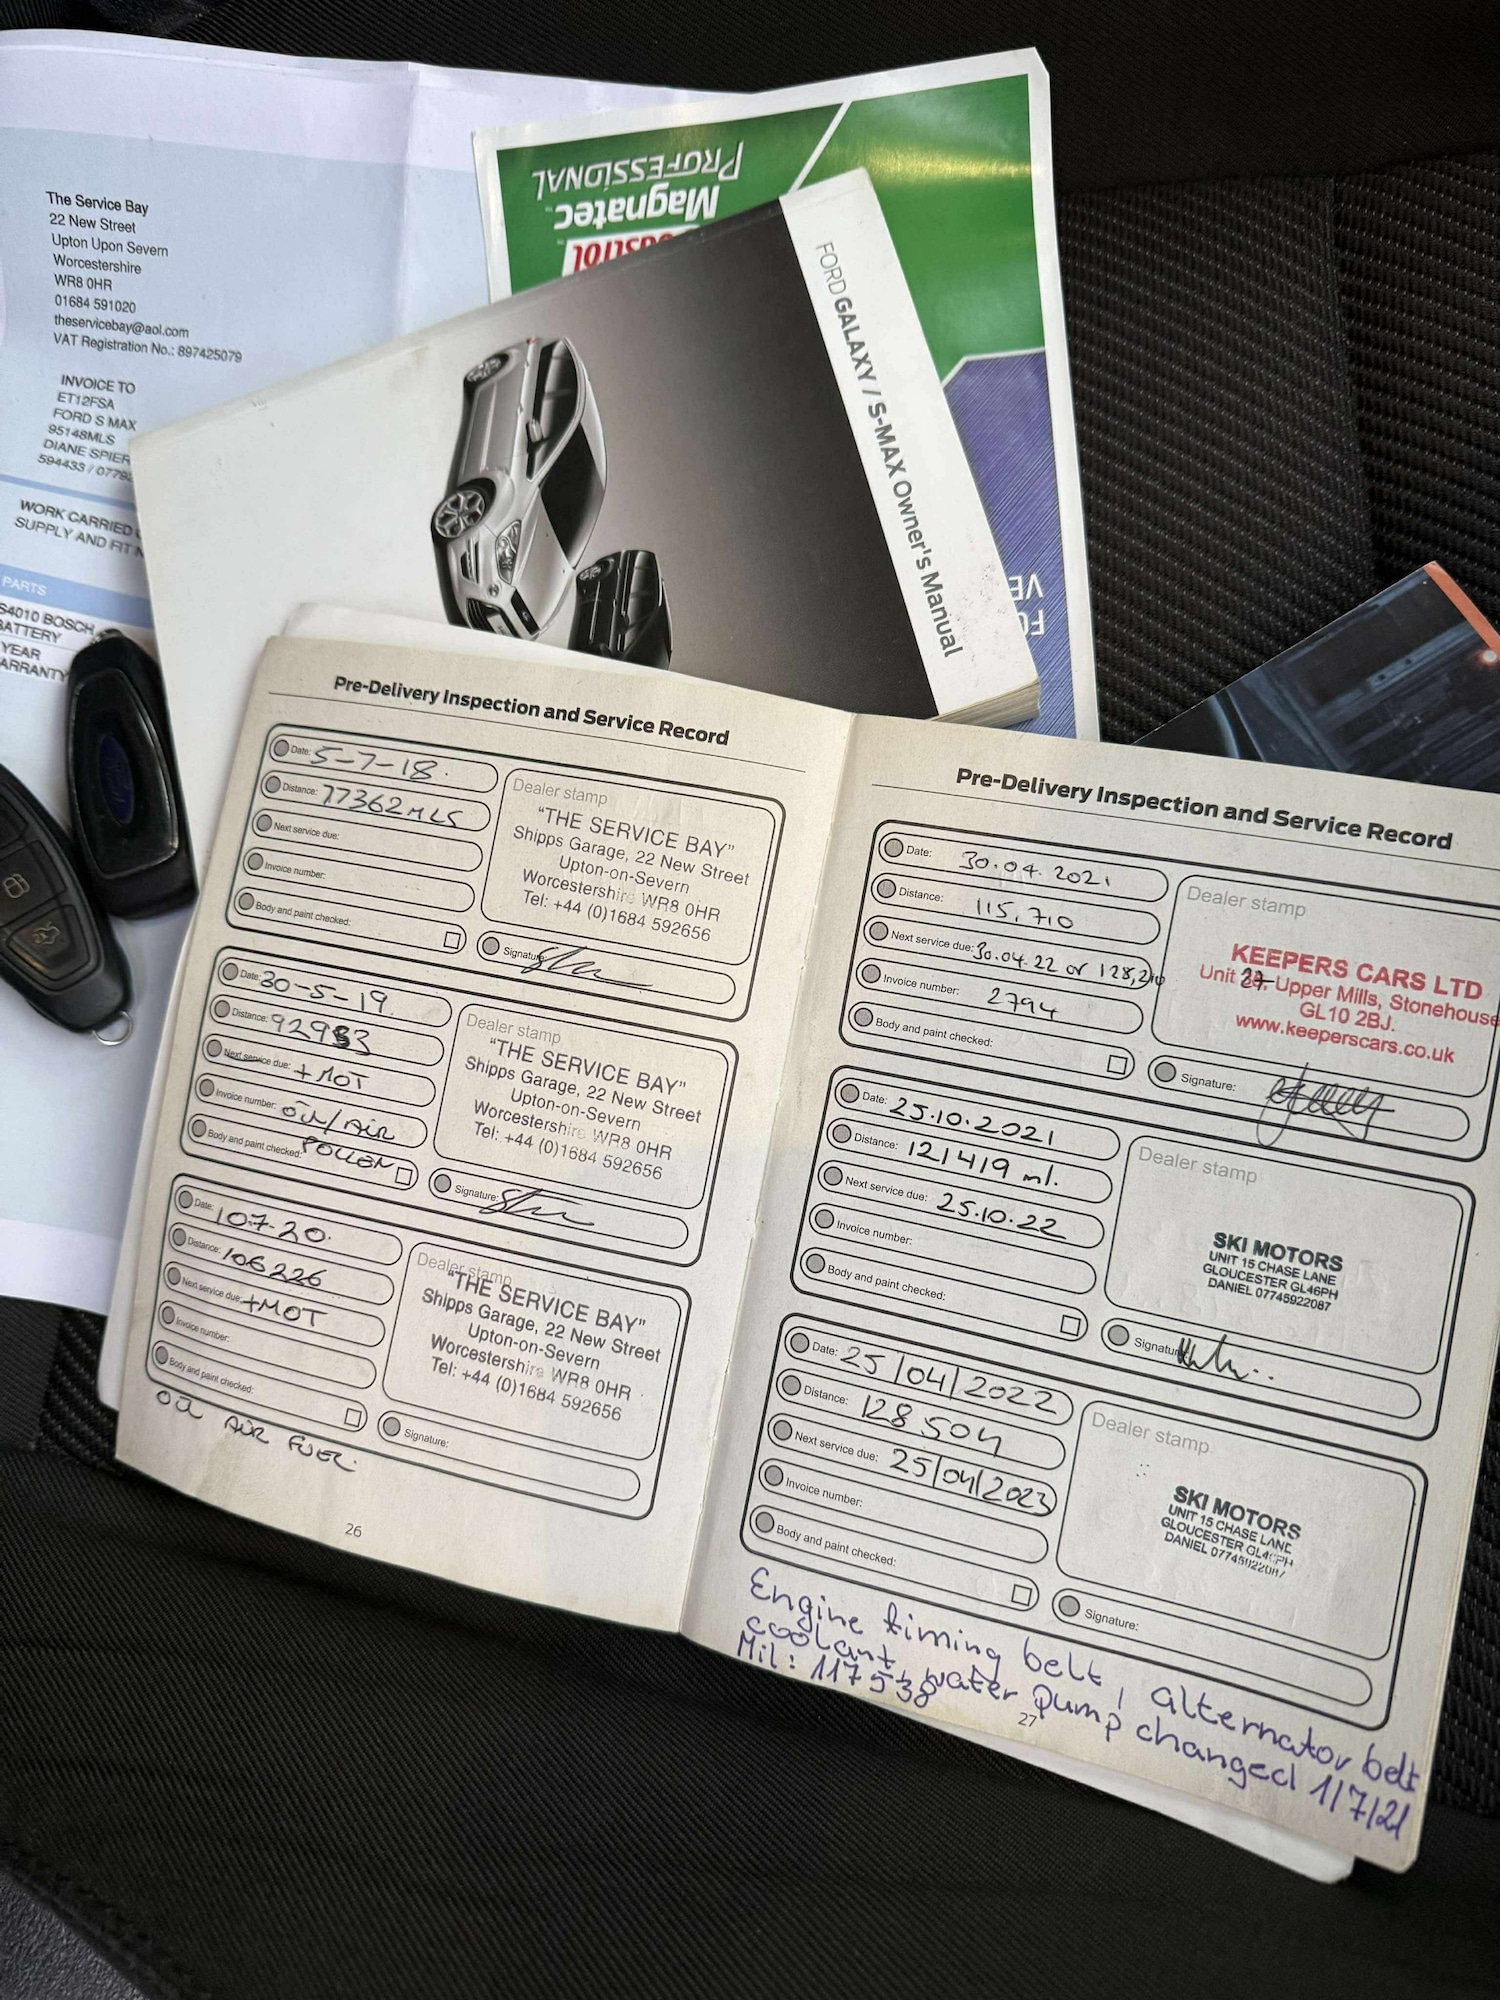 The Service Bay
22 New Street
Upton Upon Severn
Worcestershire
WR8 0HR
01684 591020
theservicebay@aol.com
VAT Registration No.: 897425079
INVOICE TO
ET12FSA
FORD S MAX
95148MLS
DIANE SPIER
594433 / 0779
WORK CARRIED
SUPPLY AND FIT N
PARTS
S4010 BOSCH
BATTERY
YEAR
WARRANTY
Castrol
Magnatec
PROFESSIONAL
FORD GALAXY / S-MAX Owner's Manual
FO
VE
Pre-Delivery Inspection and Service Record
Date: 5-7-18.
Distance: 77362MLS
Next service due:
Invoice number:
Body and paint checked:
Dealer stamp
"THE SERVICE BAY"
Shipps Garage, 22 New Street
Upton-on-Severn
Worcestershire WR8 0HR
Tel: +44 (0)1684 592656
Signature:
Date: 30-5-19.
Distance: 92983
Next service due: + MOT
Invoice number: OIL/AIR
Body and paint checked: POLLEN
Dealer stamp
"THE SERVICE BAY"
Shipps Garage, 22 New Street
Upton-on-Severn
Worcestershire WR8 0HR
Tel: +44 (0)1684 592656
Signature:
Date: 107-20.
Distance: 106226
Next service due: +MOT
Invoice number:
Body and paint checked:
Dealer stamp
"THE SERVICE BAY"
Shipps Garage, 22 New Street
Upton-on-Severn
Worcestershire WR8 0HR
Tel: +44 (0)1684 592656
Signature:
OIL AIR FUEL.
26
Pre-Delivery Inspection and Service Record
Date: 30.04.2021
Distance: 115,710
Next service due: 30.04.22 or 128,210
Invoice number: 2794
Body and paint checked:
Dealer stamp
KEEPERS CARS LTD
Unit 27, Upper Mills, Stonehouse
GL10 2BJ.
www.keeperscars.co.uk
Signature:
Date: 25.10.2021
Distance: 121419 ml.
Next service due: 25.10.22
Invoice number:
Body and paint checked:
Dealer stamp
SKI MOTORS
UNIT 15 CHASE LANE
GLOUCESTER GL46PH
DANIEL 07745922087
Signature:
Date: 25/04/2022
Distance: 128504
Next service due: 25/04/2023
Invoice number:
Body and paint checked:
Dealer stamp
SKI MOTORS
UNIT 15 CHASE LANE
GLOUCESTER GL46PH
DANIEL 07745922087
Signature:
Engine timing belt, alternator belt
coolant, water pump changed 1/7/21
Mil: 117538
27